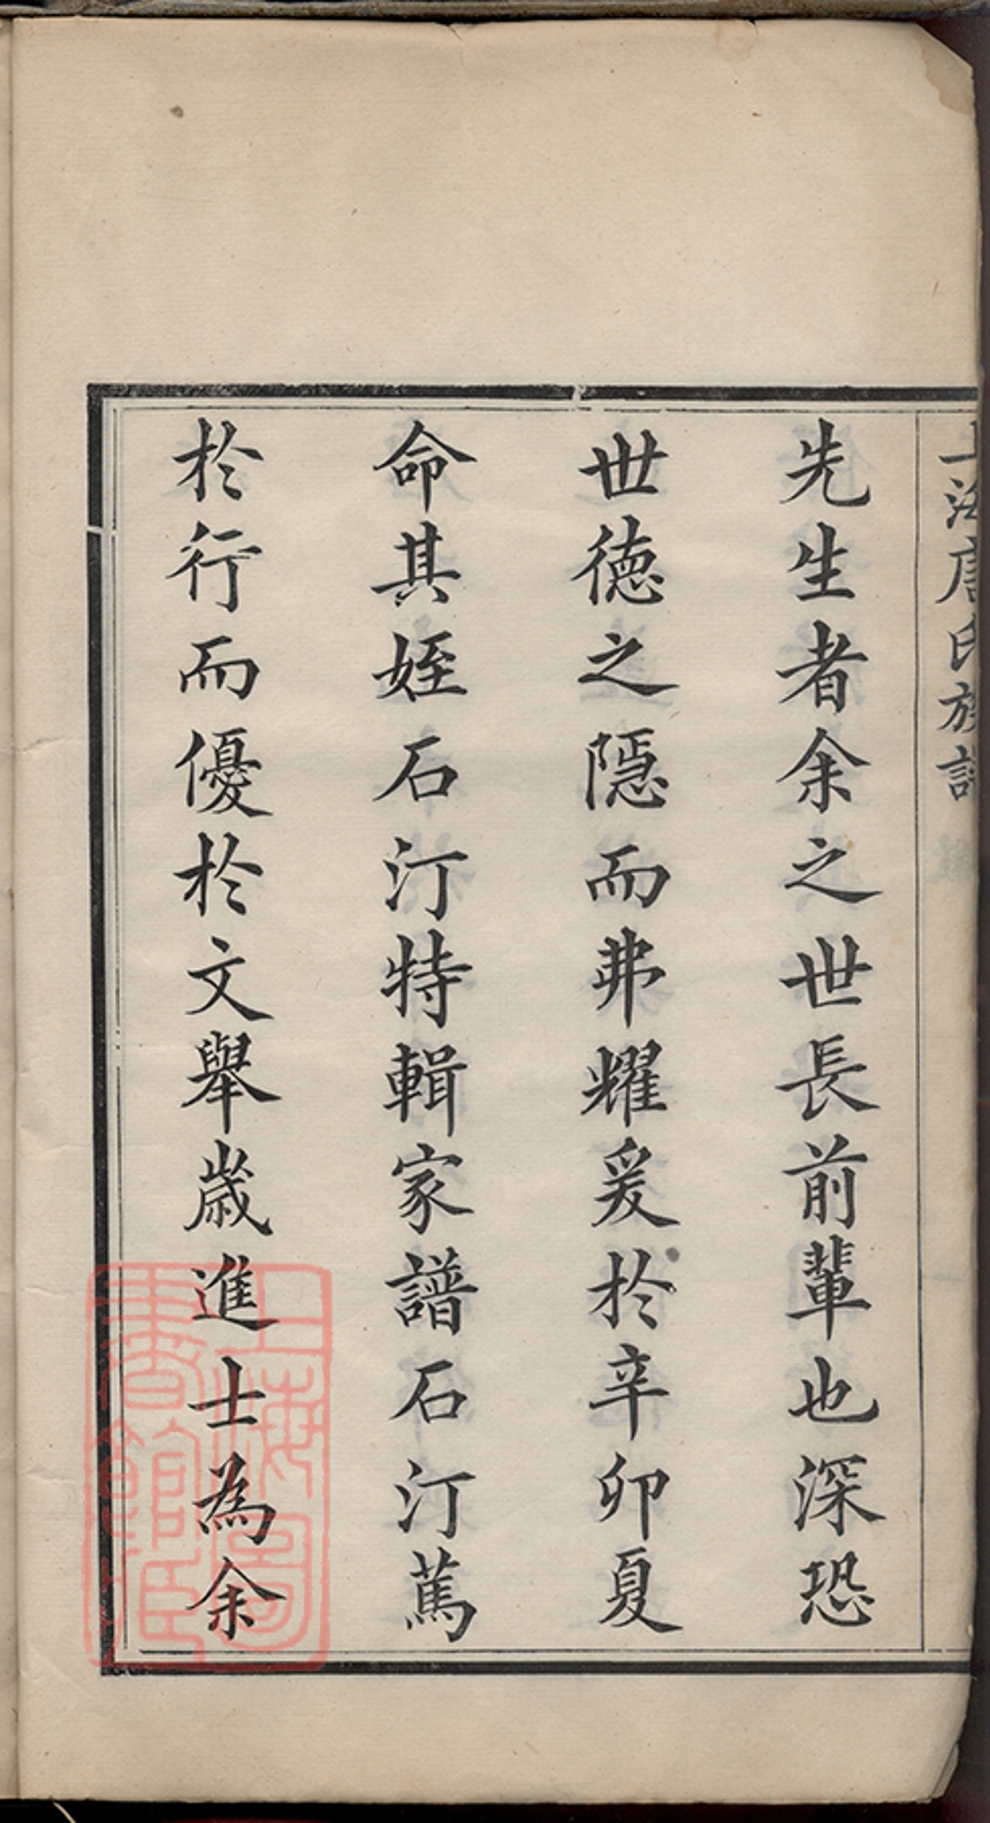 上海唐氏族譜
先生者余之世長前輩也深恐
世德之隠而弗耀爰於辛卯夏
命其姪石汀特輯家譜石汀蔿
於行而優於文舉歲進士為余
上海圖
書館藏